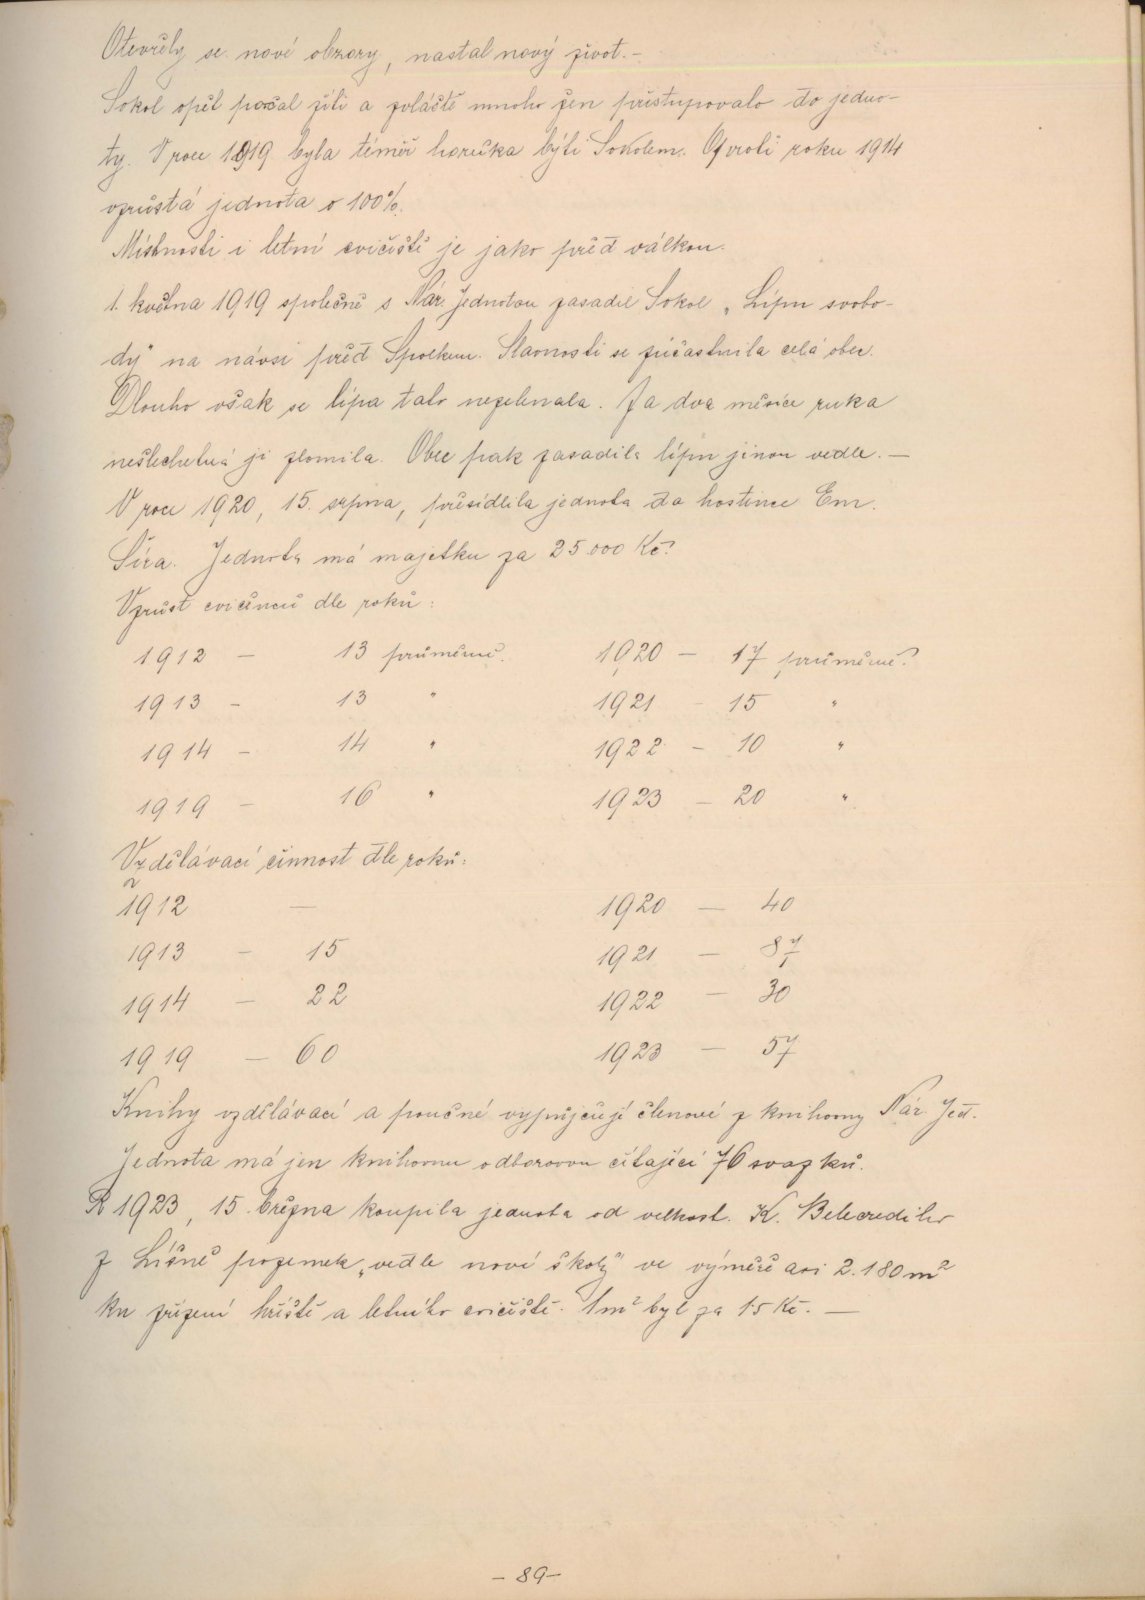 Otevřely se nové obzory, nastal nový život.-
Sokol opět počal žíti a zvláště mnoho žen přistupovalo do jedno-
ty. V roce 1919 byla téměř horučka býti Sokolem. Oproti roku 1914
vzrůstá jednota o 100%.
Místnosti i letní cvičiště je jako před válkou.
1. května 1919 společně s Nár. Jednotou zasadil Sokol „Lípu svobo-
dy" na návsi před Spolkem. Slavnosti se zúčastnila celá obec.
Dlouho však se lípa tato nezelenala. Za dva měsíce ruka
nešlechetná ji zlomila. Obec pak zasadila lípu jinou vedle. —
V roce 1920, 15. srpna, přesídlila jednota do hostince Em.
Šíra. Jednota má majetku za 25000 Kč.
Vzrůst cvičenců dle roků:
1912 — 13 průměrně. 1920 — 17 průměrně.
1913 - 13 " 1921 - 15 "
1914 - 14 " 1922 - 10 "
1919 - 16 " 1923 - 20 "
Vzdělávací činnost dle roků:
1912 — 1920 — 40
1913 - 15 1921 — 87
1914 - 22 1922 — 30
1919 — 60 1923 — 57
Knihy vzdělávací a poučné vypůjčují členové z knihovny Nár. Jed.
Jednota má jen knihovnu odborovou čítající 76 svazků.
R 1923, 15. března koupila jednota od velkost. K. Belcrediho
z Líšně pozemek „vedle nové školy" ve výměře asi 2.180 m²
ku zřízení hřiště a letního cvičiště. 1m² byl za 15 Kč. —
- 89 -